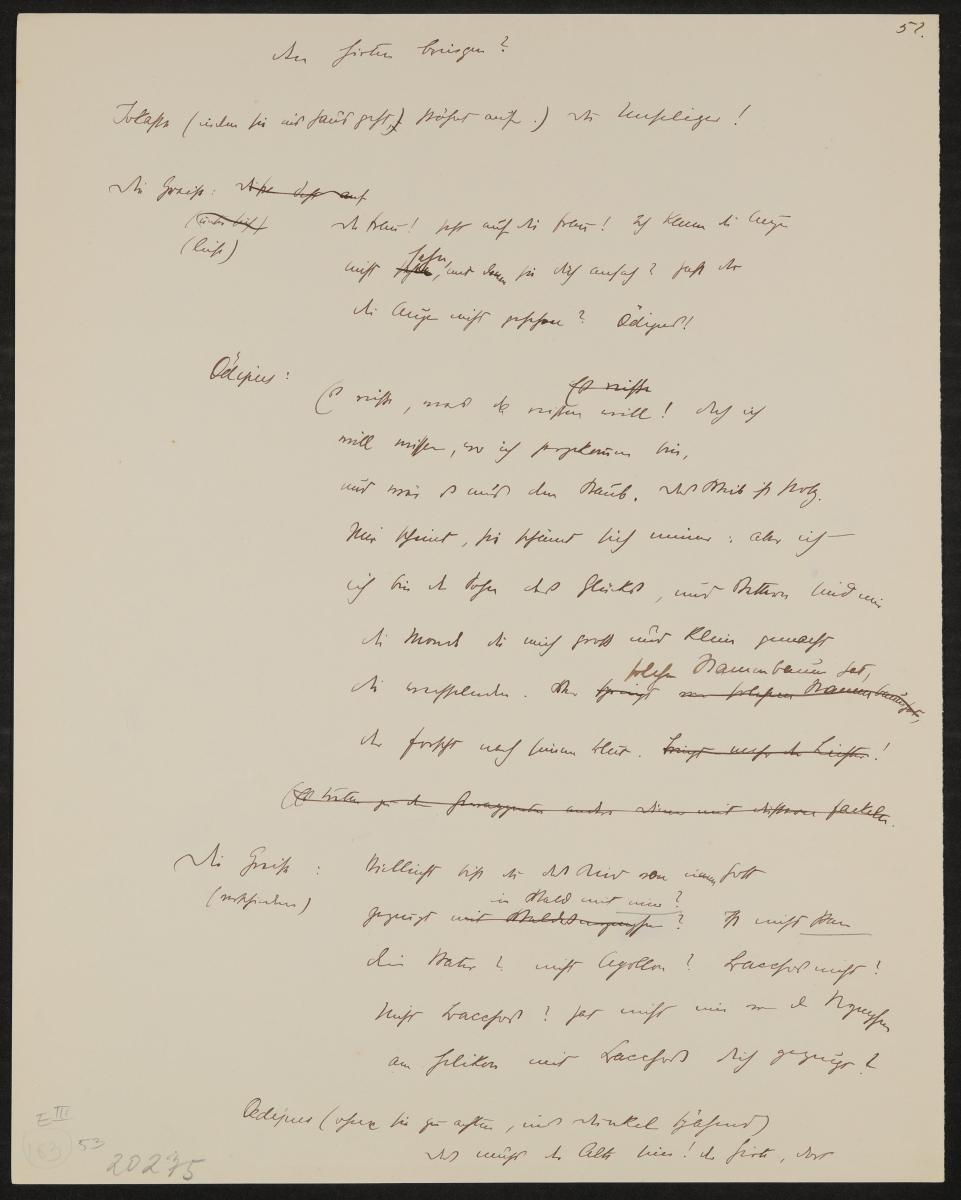 52.
den Hirten bringen?
Jokaste (indem sie ins Haus geht, stöhnt auf.) du Unseliger!
Die Greise: 
(leise) die Frau! seht auf die Frau! Ich kann die Augen
nicht sehn, mit denen sie dich ansah? hast du
die Augen nicht gesehen? Ödipus!
Ödipus: Es reisse, was da reissen will! doch ich
will wissen, wo ich hergekommen bin,
und wär es aus dem Staub. das Weib ist stolz.
Mir scheint, sie schämt sich meiner: aber ich –
ich bin der Sohn des Glücks, und Vettern sind mir
die Monde die mich gross und klein gemacht
die wechselnden. Wer solchen Stammbaum hat,
der forscht nach seinem Blut.!
Die Greise: Vielleicht bist du das Kind von einem Gott
in Wald mit
gezeugt? Ist nicht Pan
dein Vater? nicht Apollon? Bacchos nicht?
Nicht Bacchos? hat nicht eine von den Nymphen
am Helikon mit Bacchos dich gezeugt?
Oedipus (ohne sie zu achten, ins Dunkel spähend)
das muss der Alte sein! der Hirte, dort
E III
163 53
20275